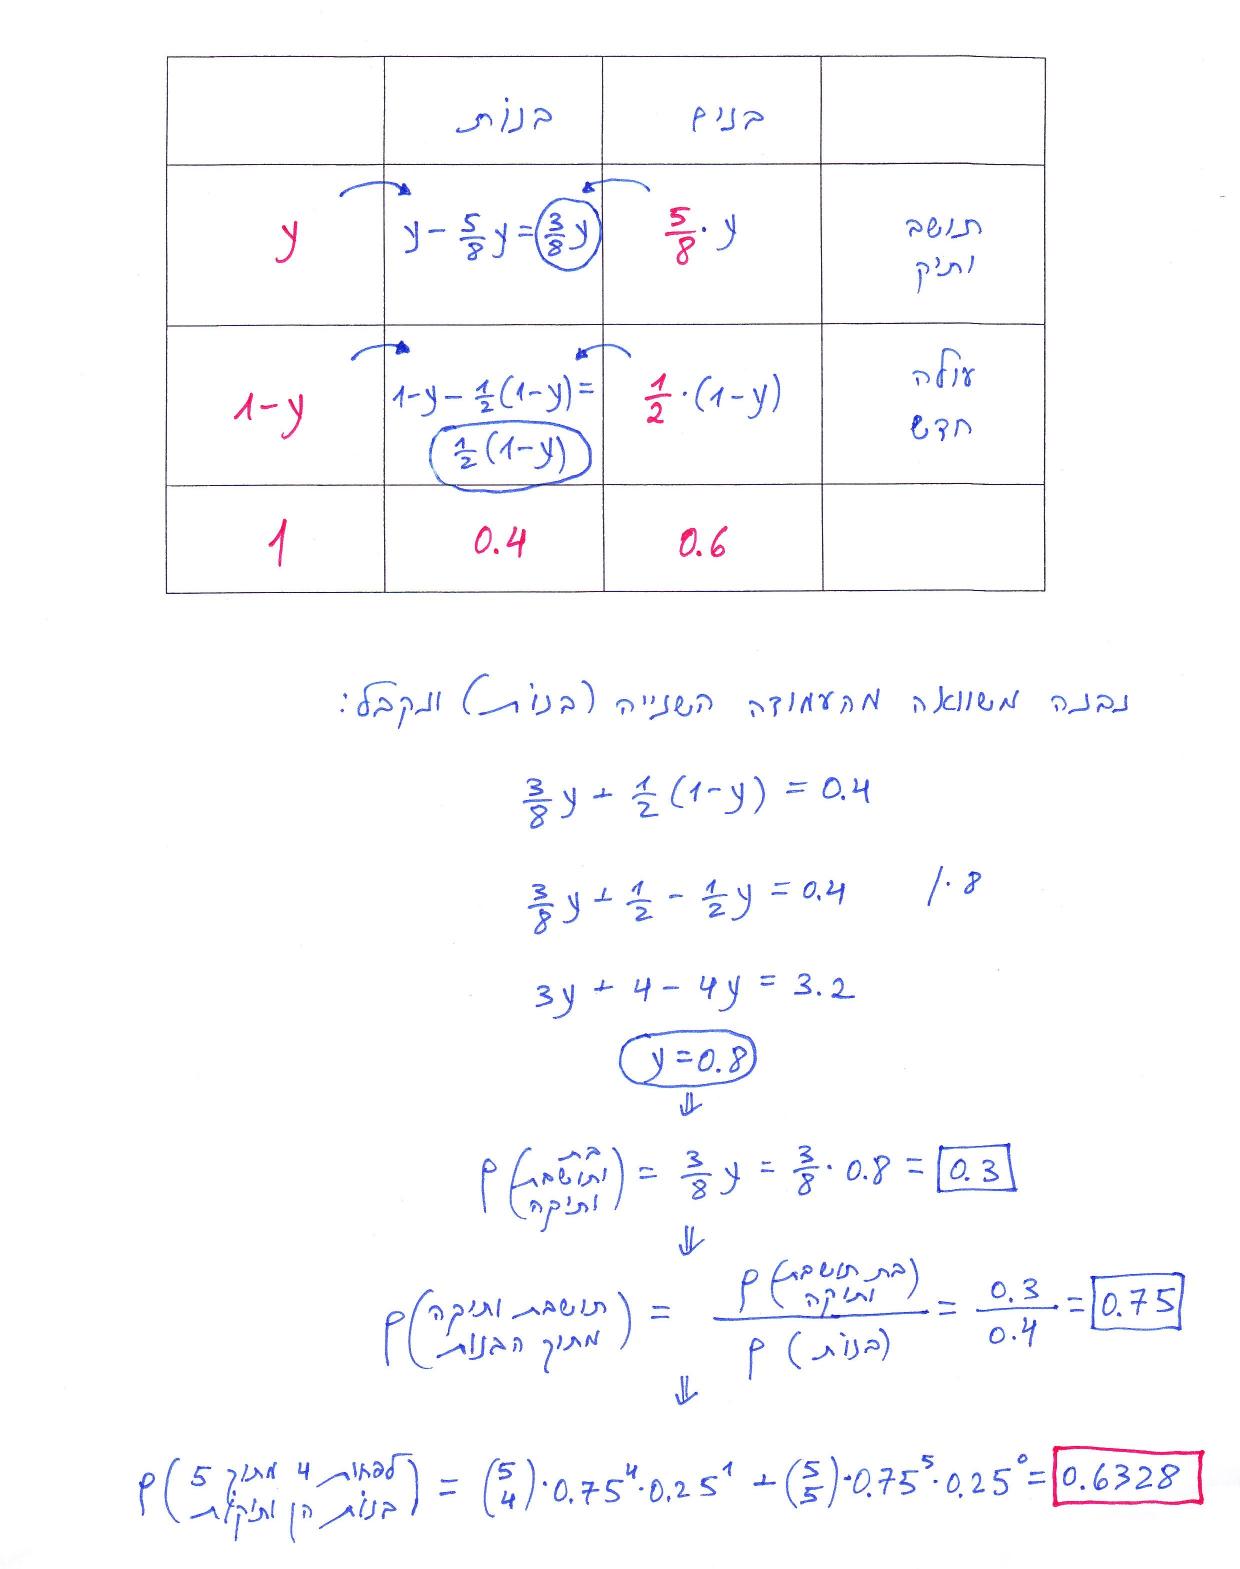 בנים בנות
תושב ותיק 5/8 · y y - 5/8 y = 3/8 y y
עולה חדש 1/2 · (1-y) 1-y - 1/2 (1-y) = 1/2 (1-y) 1-y
0.6 0.4 1
נבנה משוואה מהעמודה השנייה (בנות) ונקבל:
3/8 y + 1/2 (1-y) = 0.4
3/8 y + 1/2 - 1/2 y = 0.4 /· 8
3y + 4 - 4y = 3.2
y = 0.8
⇓
P(בת ותושבת ותיקה) = 3/8 y = 3/8 · 0.8 = 0.3
⇓
P(תושבת ותיקה מתוך הבנות) = P(בת תושבת ותיקה) / P(בנות) = 0.3/0.4 = 0.75
⇓
P(לפחות 4 מתוך 5 בנות הן ותיקות) = (5 4) · 0.75⁴ · 0.25¹ + (5 5) · 0.75⁵ · 0.25⁰ = 0.6328